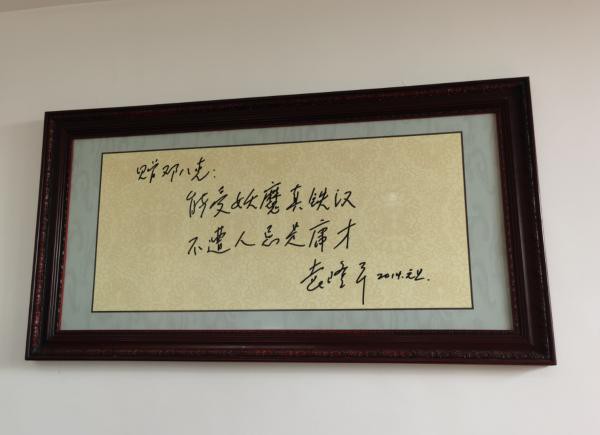 赠邓八先:
能受妖魔真铁汉
不遭人忌是庸才
袁隆平 2014.元旦.